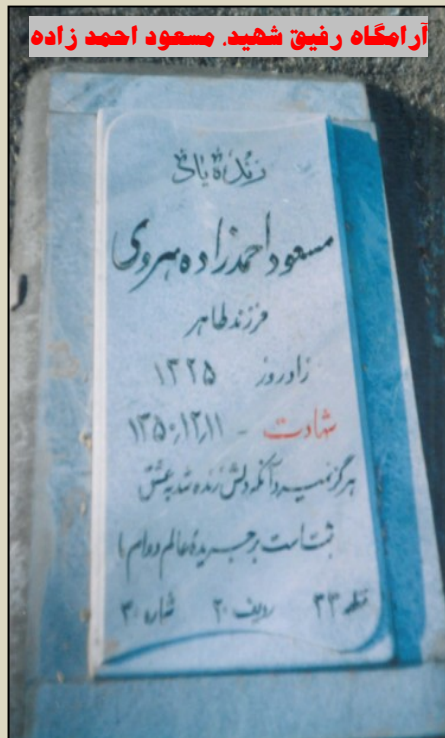 آرامگاه رفیق شهید، مسعود احمد زاده
زنده یاد
مسعود احمدزاده هروی
فرزند طاهر
زادروز ۱۳۲۵
شهادت - ۱۳۵۰,۱۲,۱۱
هرگز نمیرد آنکه دلش زنده شد به عشق
ثبت است بر جریدهٔ عالم دوام ما
قطعه ۳۳ ردیف ۲۰ شماره ۳